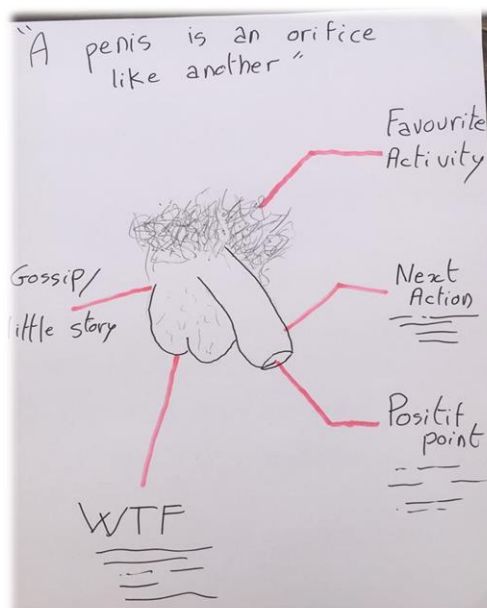 "A penis is an orifice
like another"
Favourite
Activity
Gossip/
little story
Next
Action
Positif
point
WTF